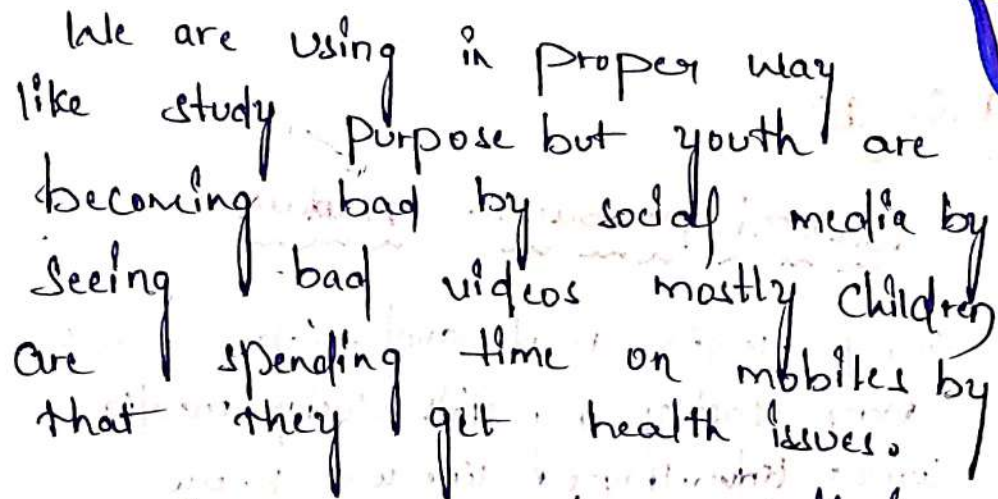 We are using in proper way
like study purpose but youth are
becoming bad by social media by
seeing bad videos mostly children
are spending time on mobiles by
that they get health issues.